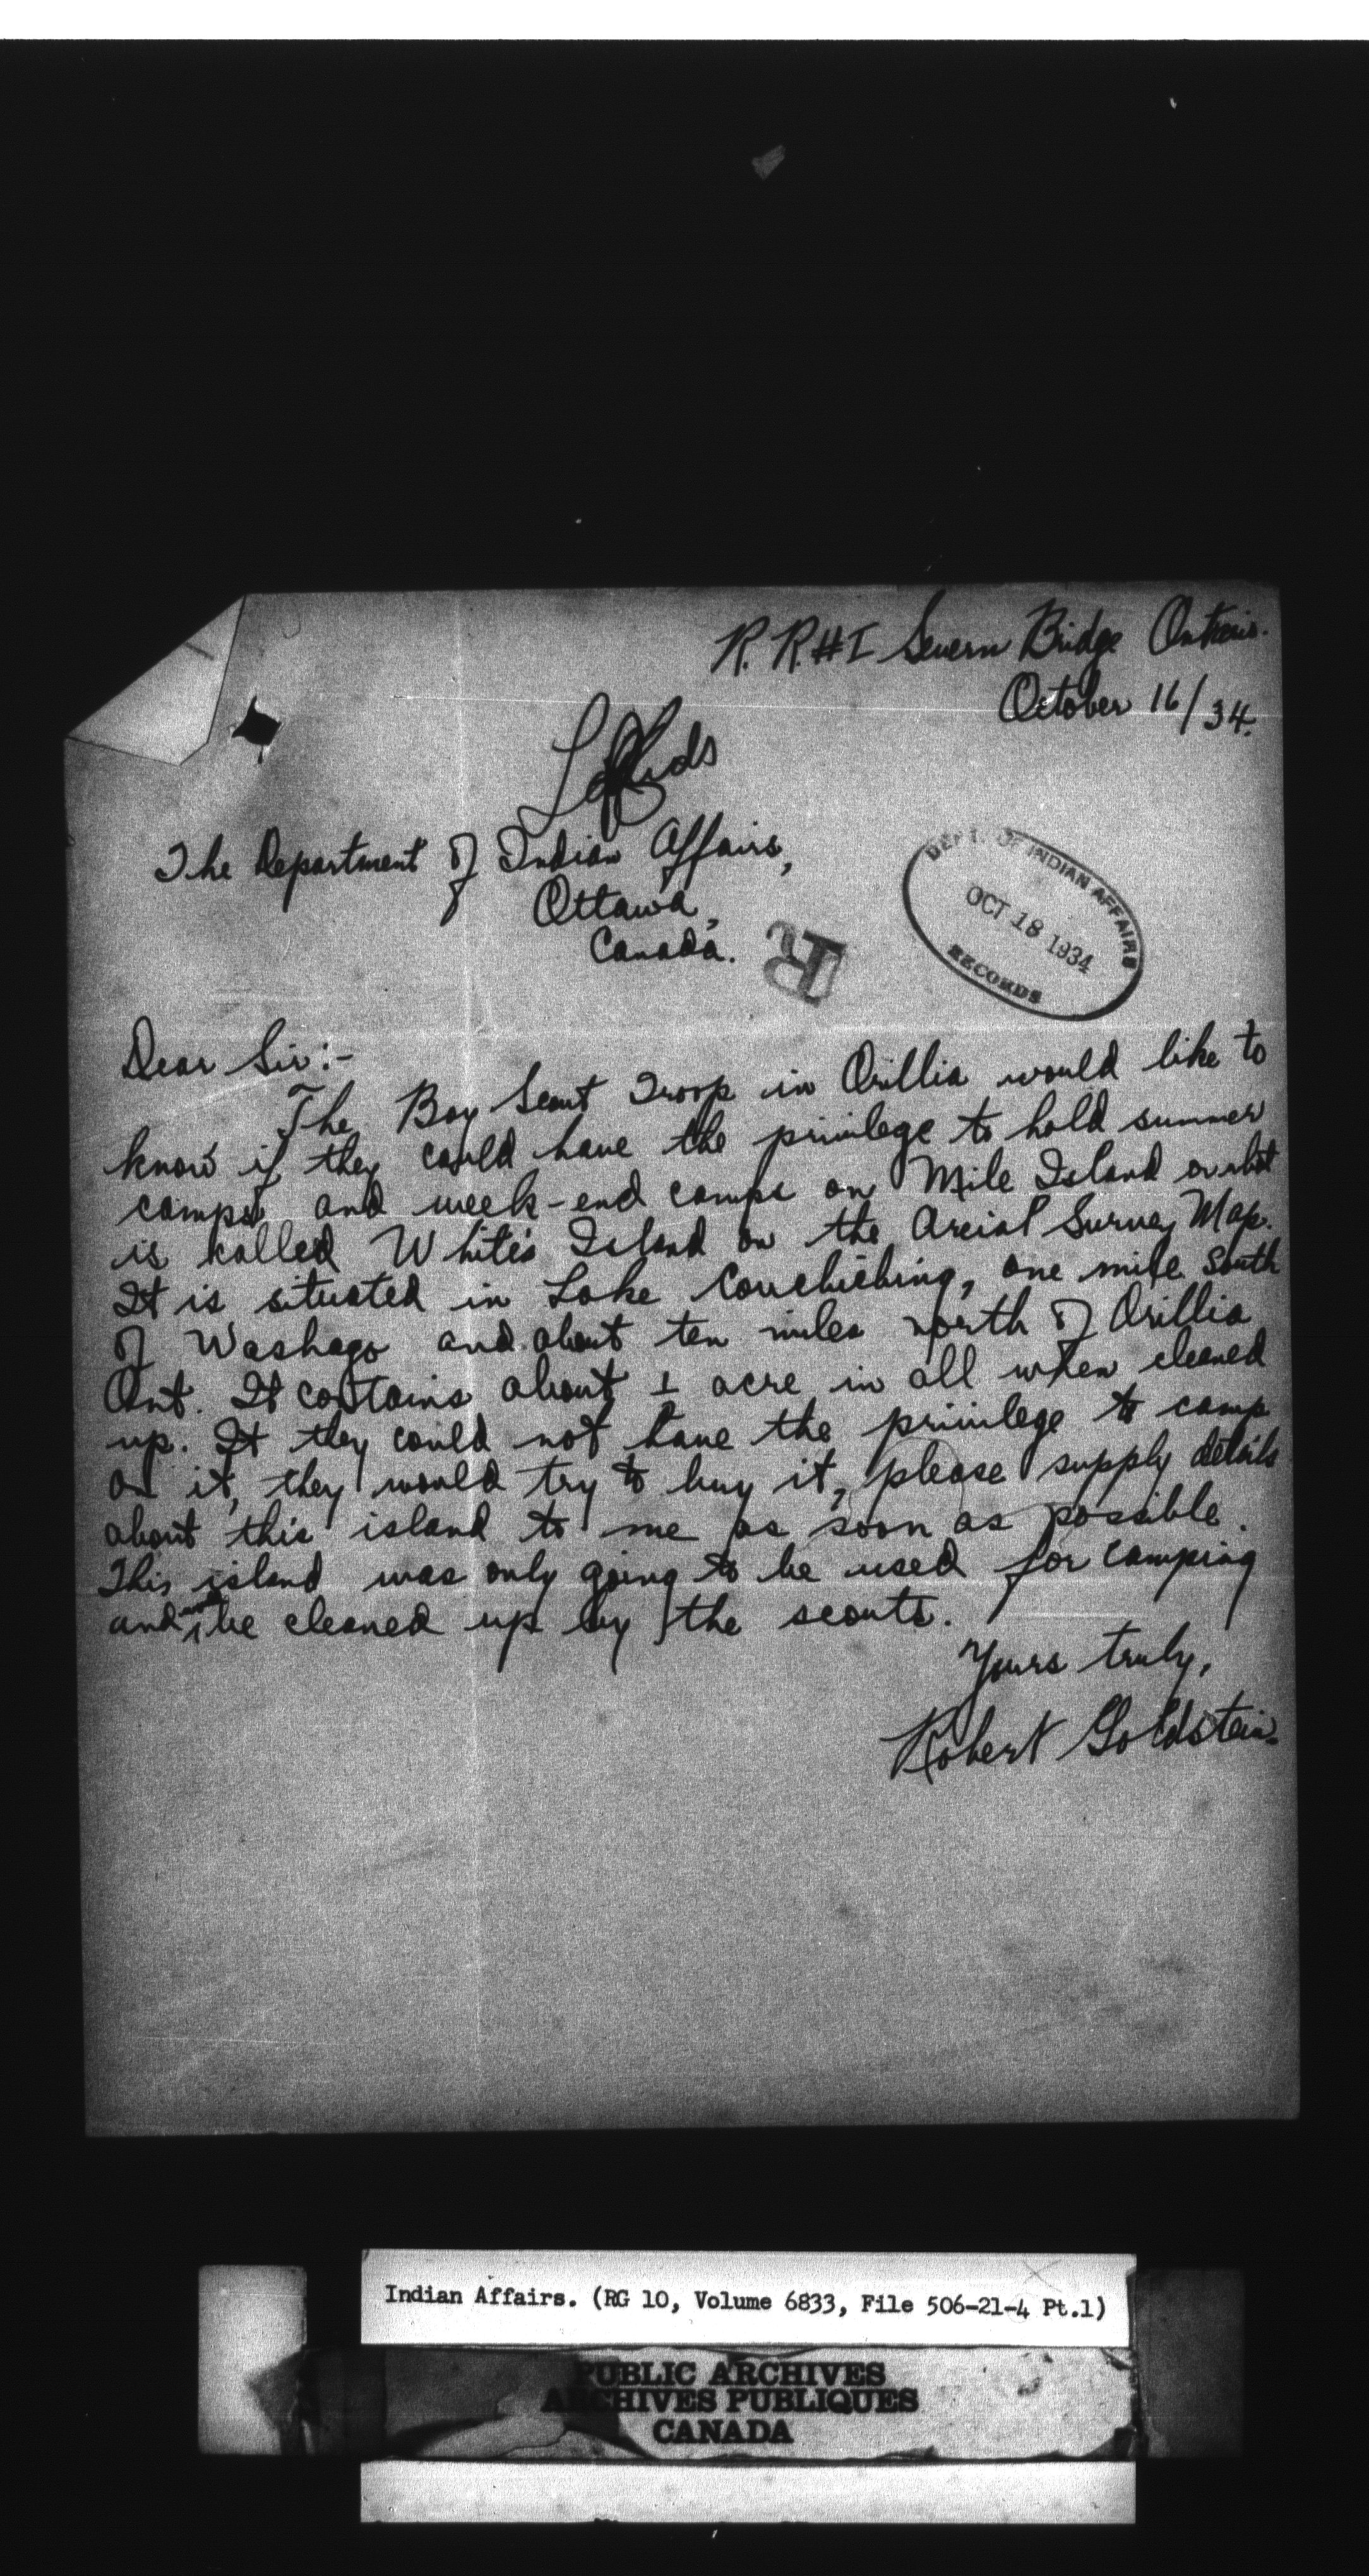 R. R. #I Severn Bridge Ontario.
October 16/34.
The Department of Indian Affairs,
Ottawa,
Canada.
R
DEPT. OF INDIAN AFFAIRS
OCT 18 1934
RECORDS
Dear Sir:-
The Boy Scout Troop in Orillia would like to
know if they could have the privilege to hold summer
camps and week-end camps on Mile Island or what
is called White's Island on the Areial Survey Map.
It is situated in Lake Couchiching, one mile South
of Washago and about ten miles north of Orillia
Ont. It contains about 1 acre in all when cleaned
up. If they could not have the privilege to camp
on it, they would try to buy it, please supply details
about this island to me as soon as possible.
This island was only going to be used for camping
and would be cleaned up by the scouts.
Yours truly,
Robert Goldstein.
Indian Affairs. (RG 10, Volume 6833, File 506-21-4 Pt.1)
PUBLIC ARCHIVES
ARCHIVES PUBLIQUES
CANADA